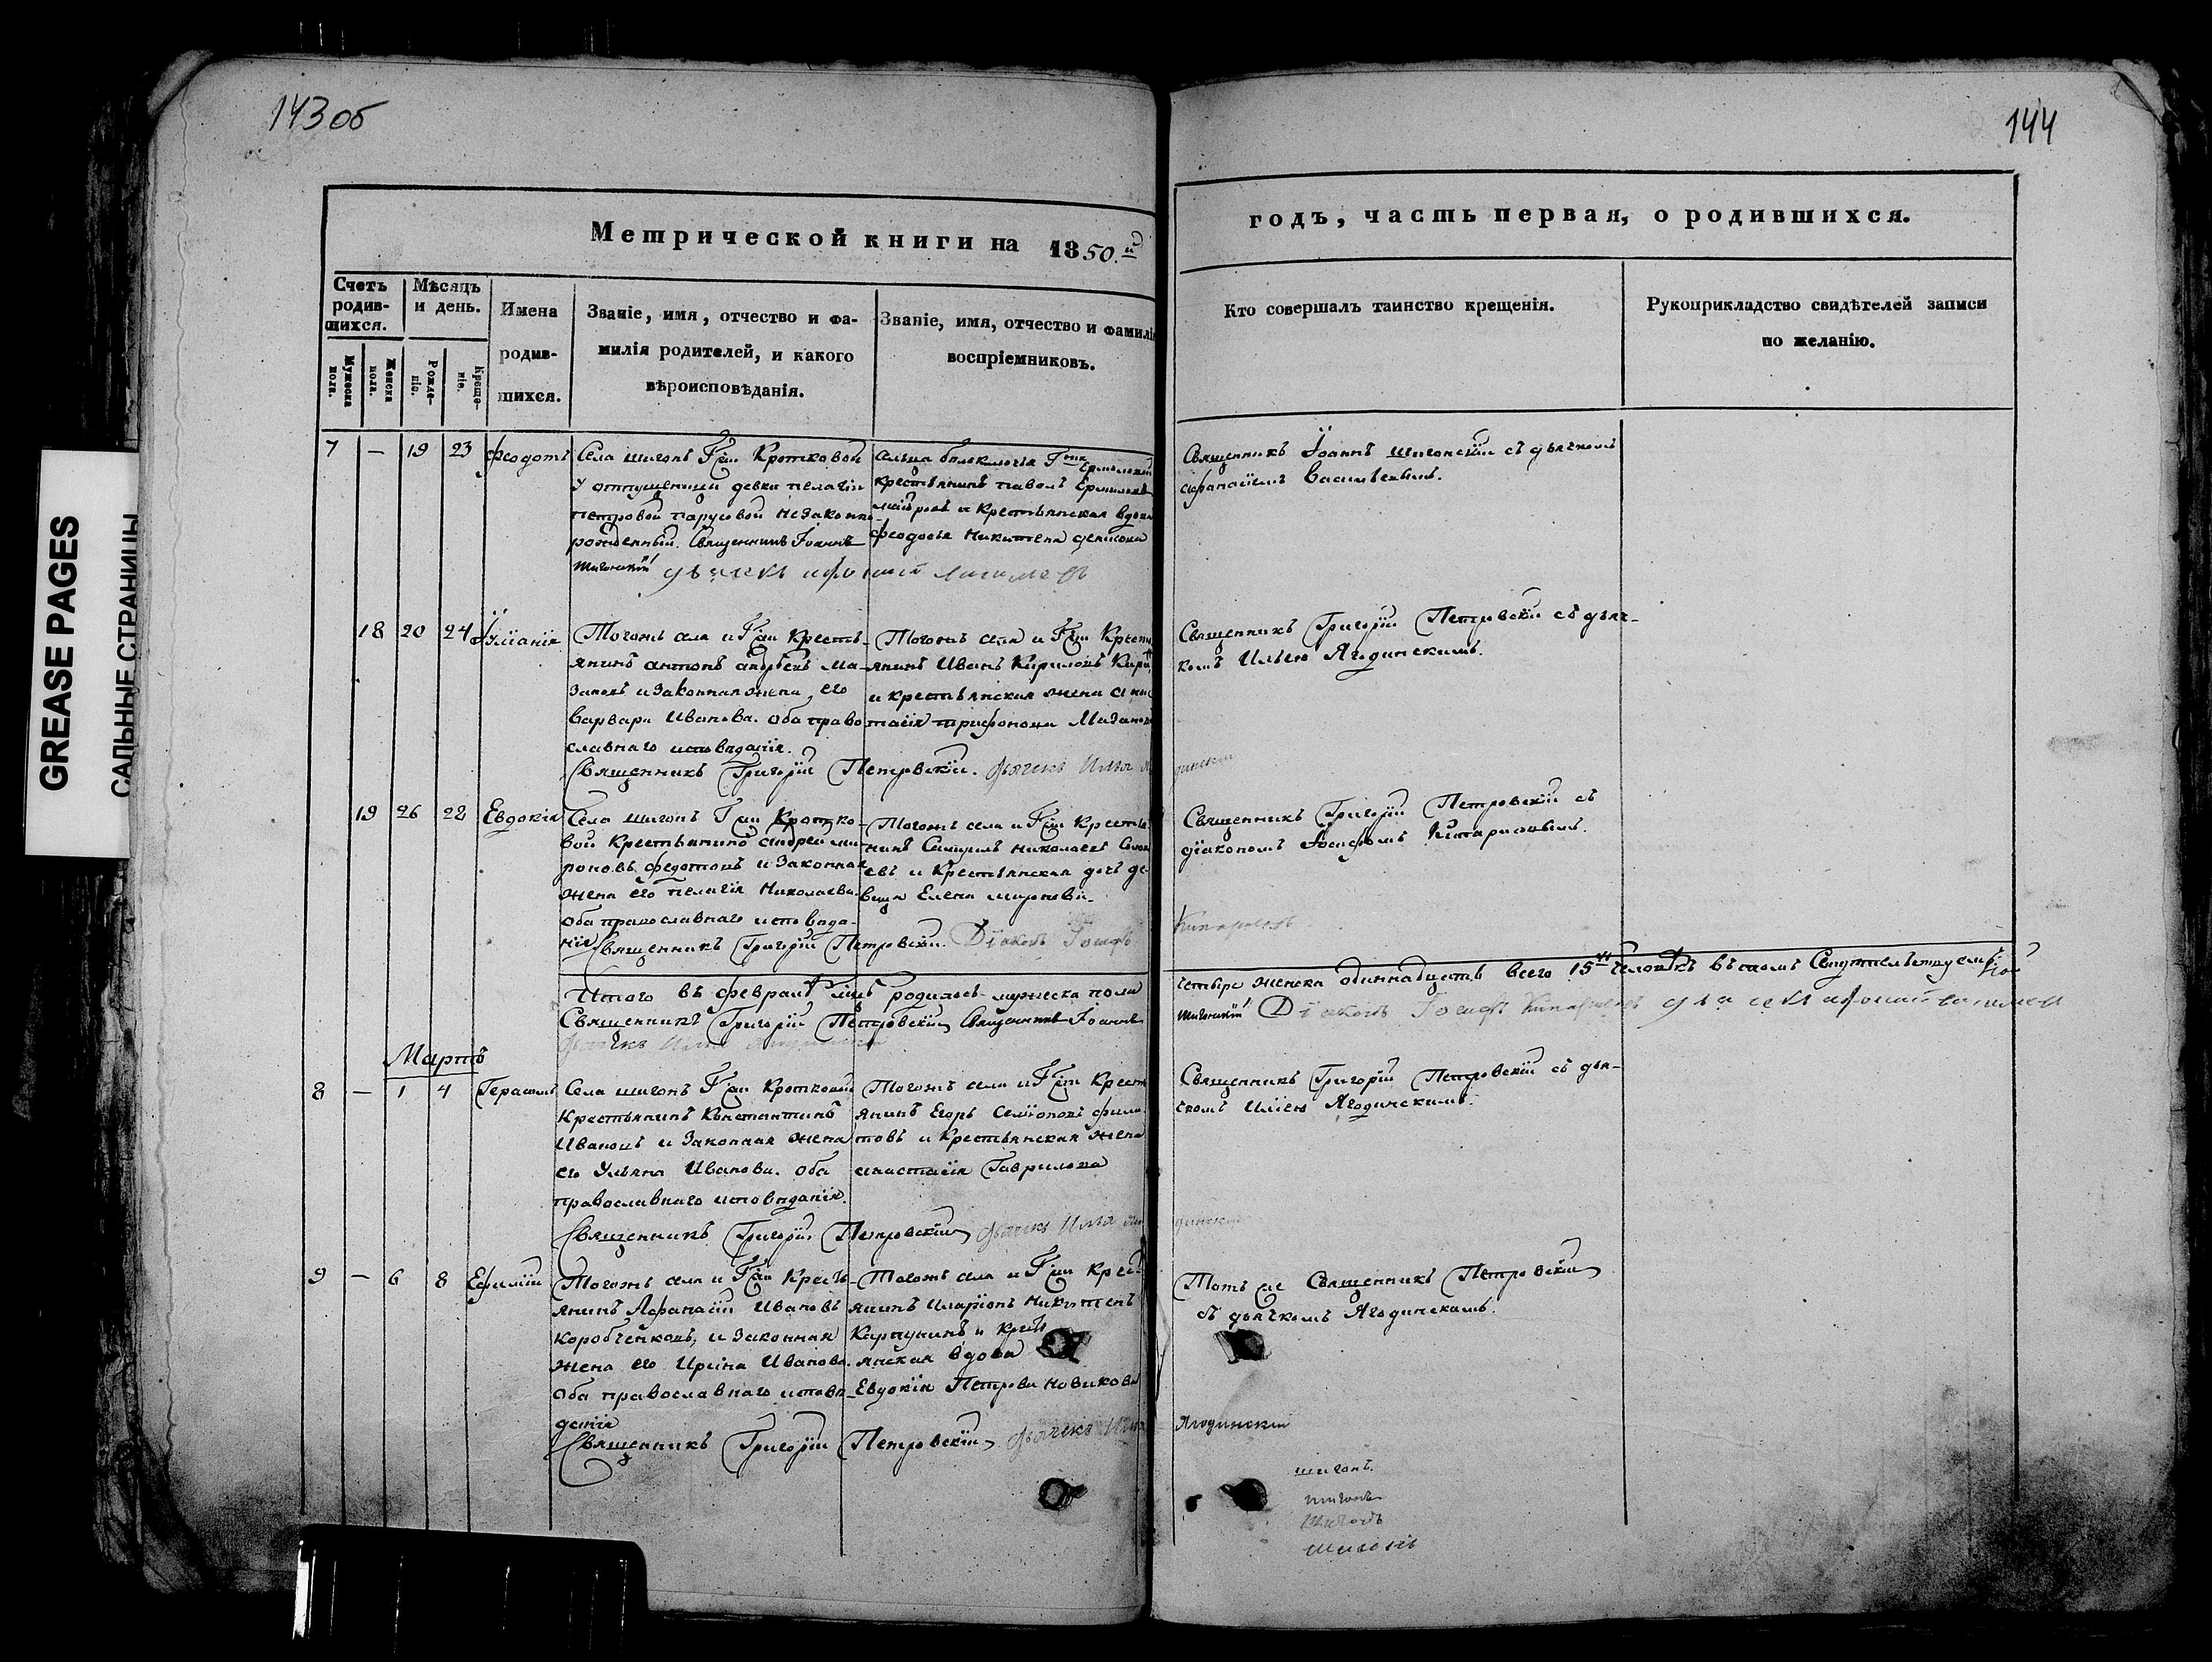 143 об
144
GREASE PAGES
САЛЬНЫЕ СТРАНИЦЫ
Метрической книги на 1850.й
годъ, часть первая, о родившихся.
Счетъ родив-шихся.
Мужеска пола.
Женска пола.
Мѣсяцъ и день.
Рожде-нiе.
Креще-нiе.
Имена
родив-
шихся.
Званiе, имя, отчество и фа-
милiя родителей, и какого
вѣроисповѣданiя.
Званiе, имя, отчество и фамилi
воспрiемниковъ.
Кто совершалъ таинство крещенiя.
Рукоприкладство свидѣтелей записи
по желанiю.
7 — 19 23 Феодотъ
Села Шигонъ Г-жи Кротковой
у отпущенной девки Пелагiи
Петровой незаконно
рожденный. Священникъ Iоаннъ
Шигонскiй
крестьянинъ Павелъ
и крестьянская вдова
Феодосья Никитина
Священникъ Iоаннъ Шигонскiй съ дьячкомъ
Афанасiемъ Васильевымъ.
18 20 24 Iулiанiя
Тогожъ села и Г-жи кресть-
янинъ Антонъ Андреевъ Ма-
зановъ и законная жена его
Варвара Иванова. Оба право
славнаго исповѣданiя.
Священникъ Григорiй Петровскiй. Дьячекъ Илья Я
динскiй
Тогожъ села и Г-жи кресть
янинъ Иванъ Кириловъ
и крестьянская жена Анас
тасiя Трифонова Мазанова
Священникъ Григорiй Петровскiй съ дьяч-
комъ Ильею Ягодинскимъ.
19 26 28 Евдокiя
Села Шигонъ Г-жи Кротко-
вой крестьянинъ Андрей Ми-
роновъ Федотовъ и законная
жена его Пелагiя Николаева.
Оба православнаго исповѣда-
нiя Священникъ Григорiй Петровскiй. Дiаконъ Iосифъ
Кипарисовъ
Тогожъ села и Г-жи кресть
нинъ Николаевъ
евъ и крестьянская дочь де-
вица Елена Миронова.
Священникъ Григорiй Петровскiй съ
дiакономъ Iосифомъ Кипарисовымъ.
Итого въ Февралѣ мцѣ родилось мужеска пола
четыре женска одиннадцать всего 15ть человѣкъ въ чемъ Свидѣтельствуемъ
Священникъ Григорiй Петровскiй Священникъ Iоаннъ
Шигонскiй Дiаконъ Iосифъ Кипарисовъ
Дьячекъ Илья
Мартъ
8 — 1 4 Герасимъ
Села Шигонъ Г-жи Кротковой
крестьянинъ Константинъ
Ивановъ и законная жена
его Ульяна Иванова. Оба
православнаго исповѣданiя.
Священникъ Григорiй Петровскiй Дьячекъ Илья Яго
динскiй
Тогожъ села и Г-жи кресть
янинъ Егоръ Семiоновъ Фила
товъ и крестьянская жена
Анастасiя Гаврилова
Священникъ Григорiй Петровскiй съ дья-
чкомъ Илiею Ягодинскимъ.
9 — 6 8 Ефимiй
Тогожъ села и Г-жи кресть-
янинъ Афанасiй Ивановъ
Коробчейковъ, и законная
жена его Ирина Иванова.
Оба православнаго исповѣ-
данiя
Священникъ Григорiй Петровскiй Дьячекъ Илья
Ягодинскiй
Тогожъ села и Г-жи крест
янинъ Иларiонъ Никитинъ
Карпунинъ и крест
янская вдова
Евдокiя Петрова Новикова
Тотъ же Священникъ Петровскiй
съ дьячкомъ Ягодинскимъ.
Шигонъ.
Шигонъ
Шигонъ
Шигонъ